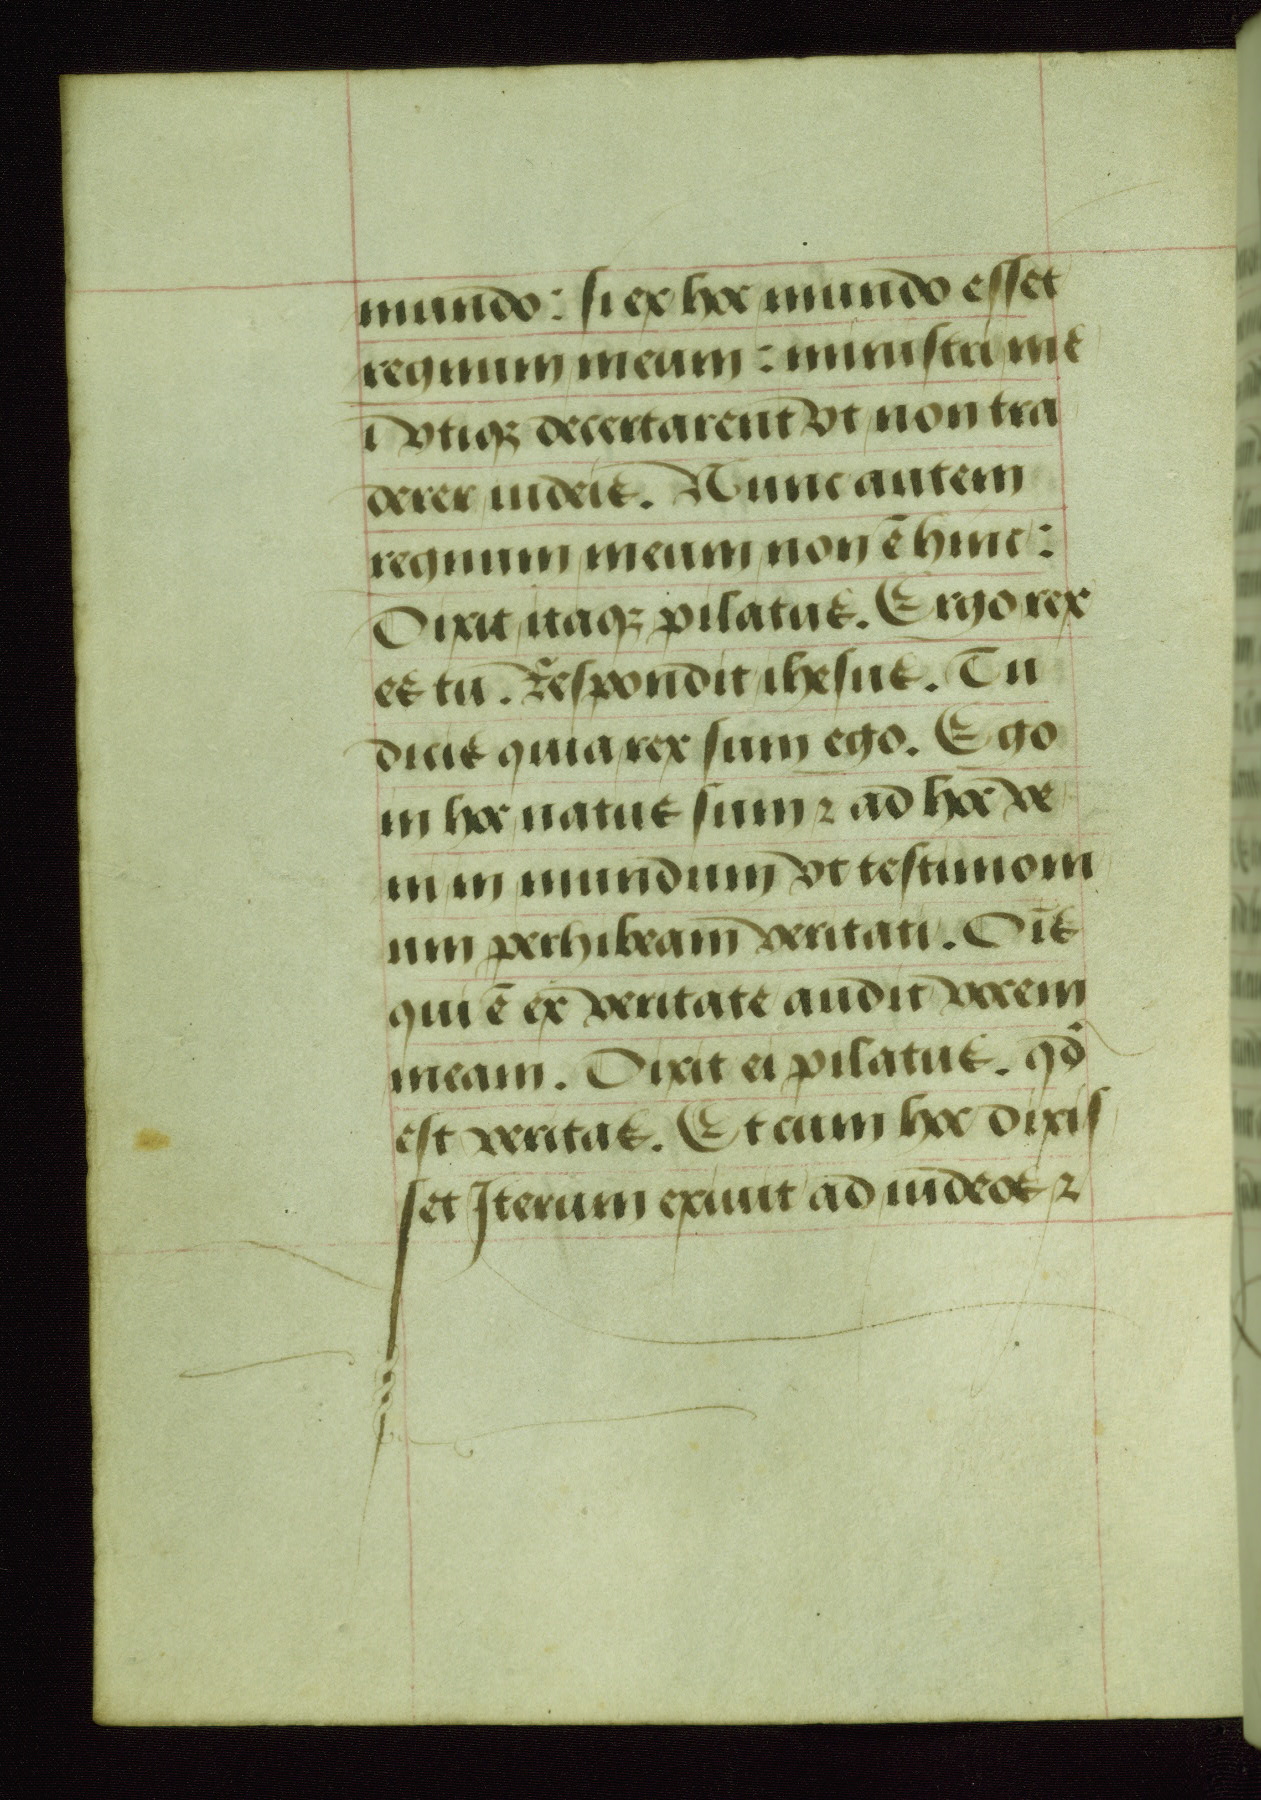 mundo: si ex hoc mundo esset
regnum meum: ministri me
i vtiqꝫ decertarent vt non tra
derer iudeis. Nunc autem
regnum meum non ē hinc:
Dixit itaqꝫ pilatus. Ergo rex
es tu. Respondit ihesus. Tu
dicis quia rex sum ego. Ego
in hoc natus sum ⁊ ad hoc ve
ni in mundum vt testimoni
um perhibeam veritati. Oīs
qui ē ex veritate audit vocem
meam. Dixit ei pilatus. qd̓
est veritas. Et cum hoc dixis
set Iterum exiuit ad iudeos ⁊